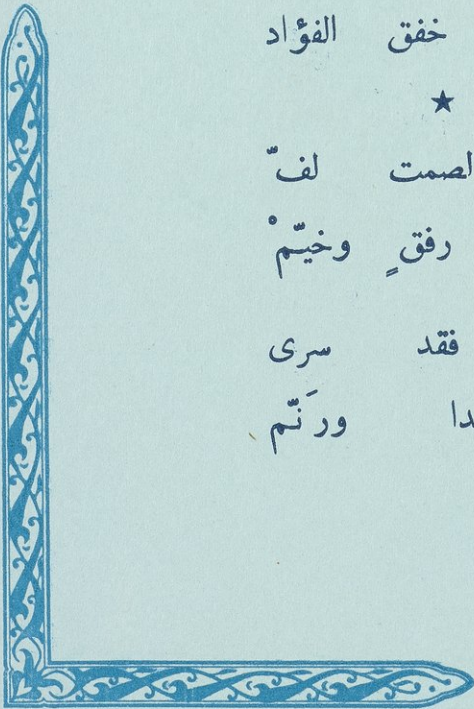 خفق الفؤاد
★
لصمت لفّ
رفقٍ وخيّمْ
فقد سرى
دا ورَنّم